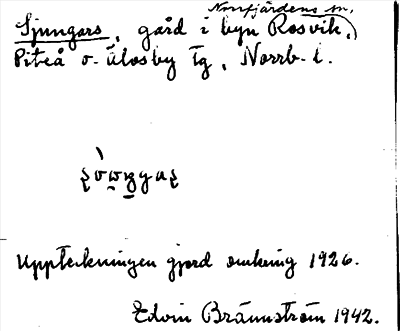 Norrfjärdens sn,
Sjungars, gård i byn Rosvik,
Piteå o. Älvsby tg, Norrb. l.
Uppteckningen gjord omkring 1926.
Edvin Brännström 1942.